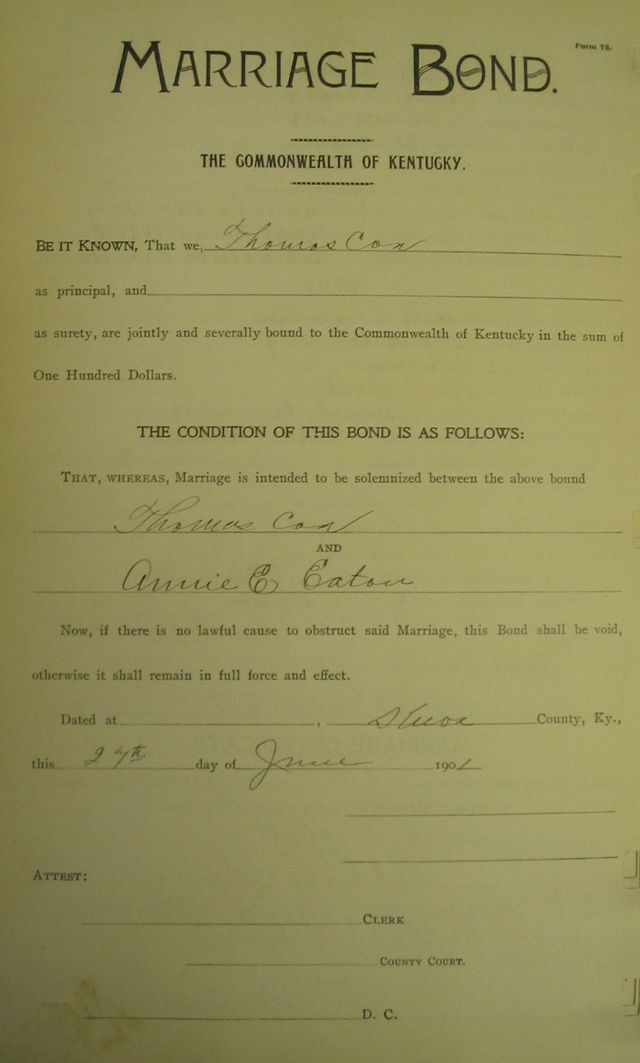 Form 78.
MARRIAGE BOND.
THE COMMONWEALTH OF KENTUCKY.
BE IT KNOWN, That we, Thomas Cox
as principal, and
as surety, are jointly and severally bound to the Commonwealth of Kentucky in the sum of
One Hundred Dollars.
THE CONDITION OF THIS BOND IS AS FOLLOWS:
THAT, WHEREAS, Marriage is intended to be solemnized between the above bound
Thomas Cox
AND
Annie E Eaton
Now, if there is no lawful cause to obstruct said Marriage, this Bond shall be void,
otherwise it shall remain in full force and effect.
Dated at , County, Ky.,
this 27th day of June 1901
ATTEST:
CLERK
COUNTY COURT.
D. C.